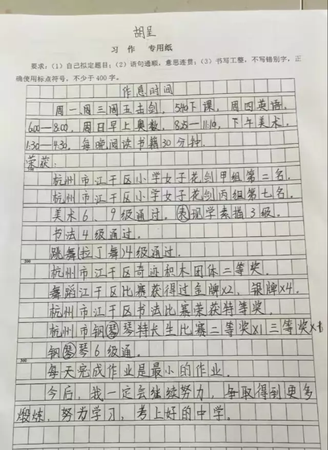 胡呈
习 作 专用纸
要求:(1)自己拟定题目;(2)语句通顺,意思连贯;(3)书写工整,不写错别字,正
确使用标点符号,不少于400字。
作息时间
周一、周三、周五击剑,5:40下课,周四英语,
6:00—8:00,周日早上奥数,8:25—11:10,下午美术,
1:30—4:30,每晚阅读书籍30分钟。
荣获:
杭州市江干区小学女子花剑甲组第二名。
杭州市江干区小学女子花剑丙组第七名。
美术6、9级通过。素描3级。
书法4级通过。
跳舞(拉丁舞)4级通过。
杭州市江干区奇迹积木团体二等奖。
舞蹈江干区比赛获得过金牌×2,银牌×4。
杭州市江干区书法比赛荣获特等奖。
杭州市钢琴特长生比赛二等奖×1三等奖×1
钢琴6级通。
每天完成作业是最小的作业。
今后,我一定会继续努力,争取得到更多
煅练,努力学习,考上好的中学。